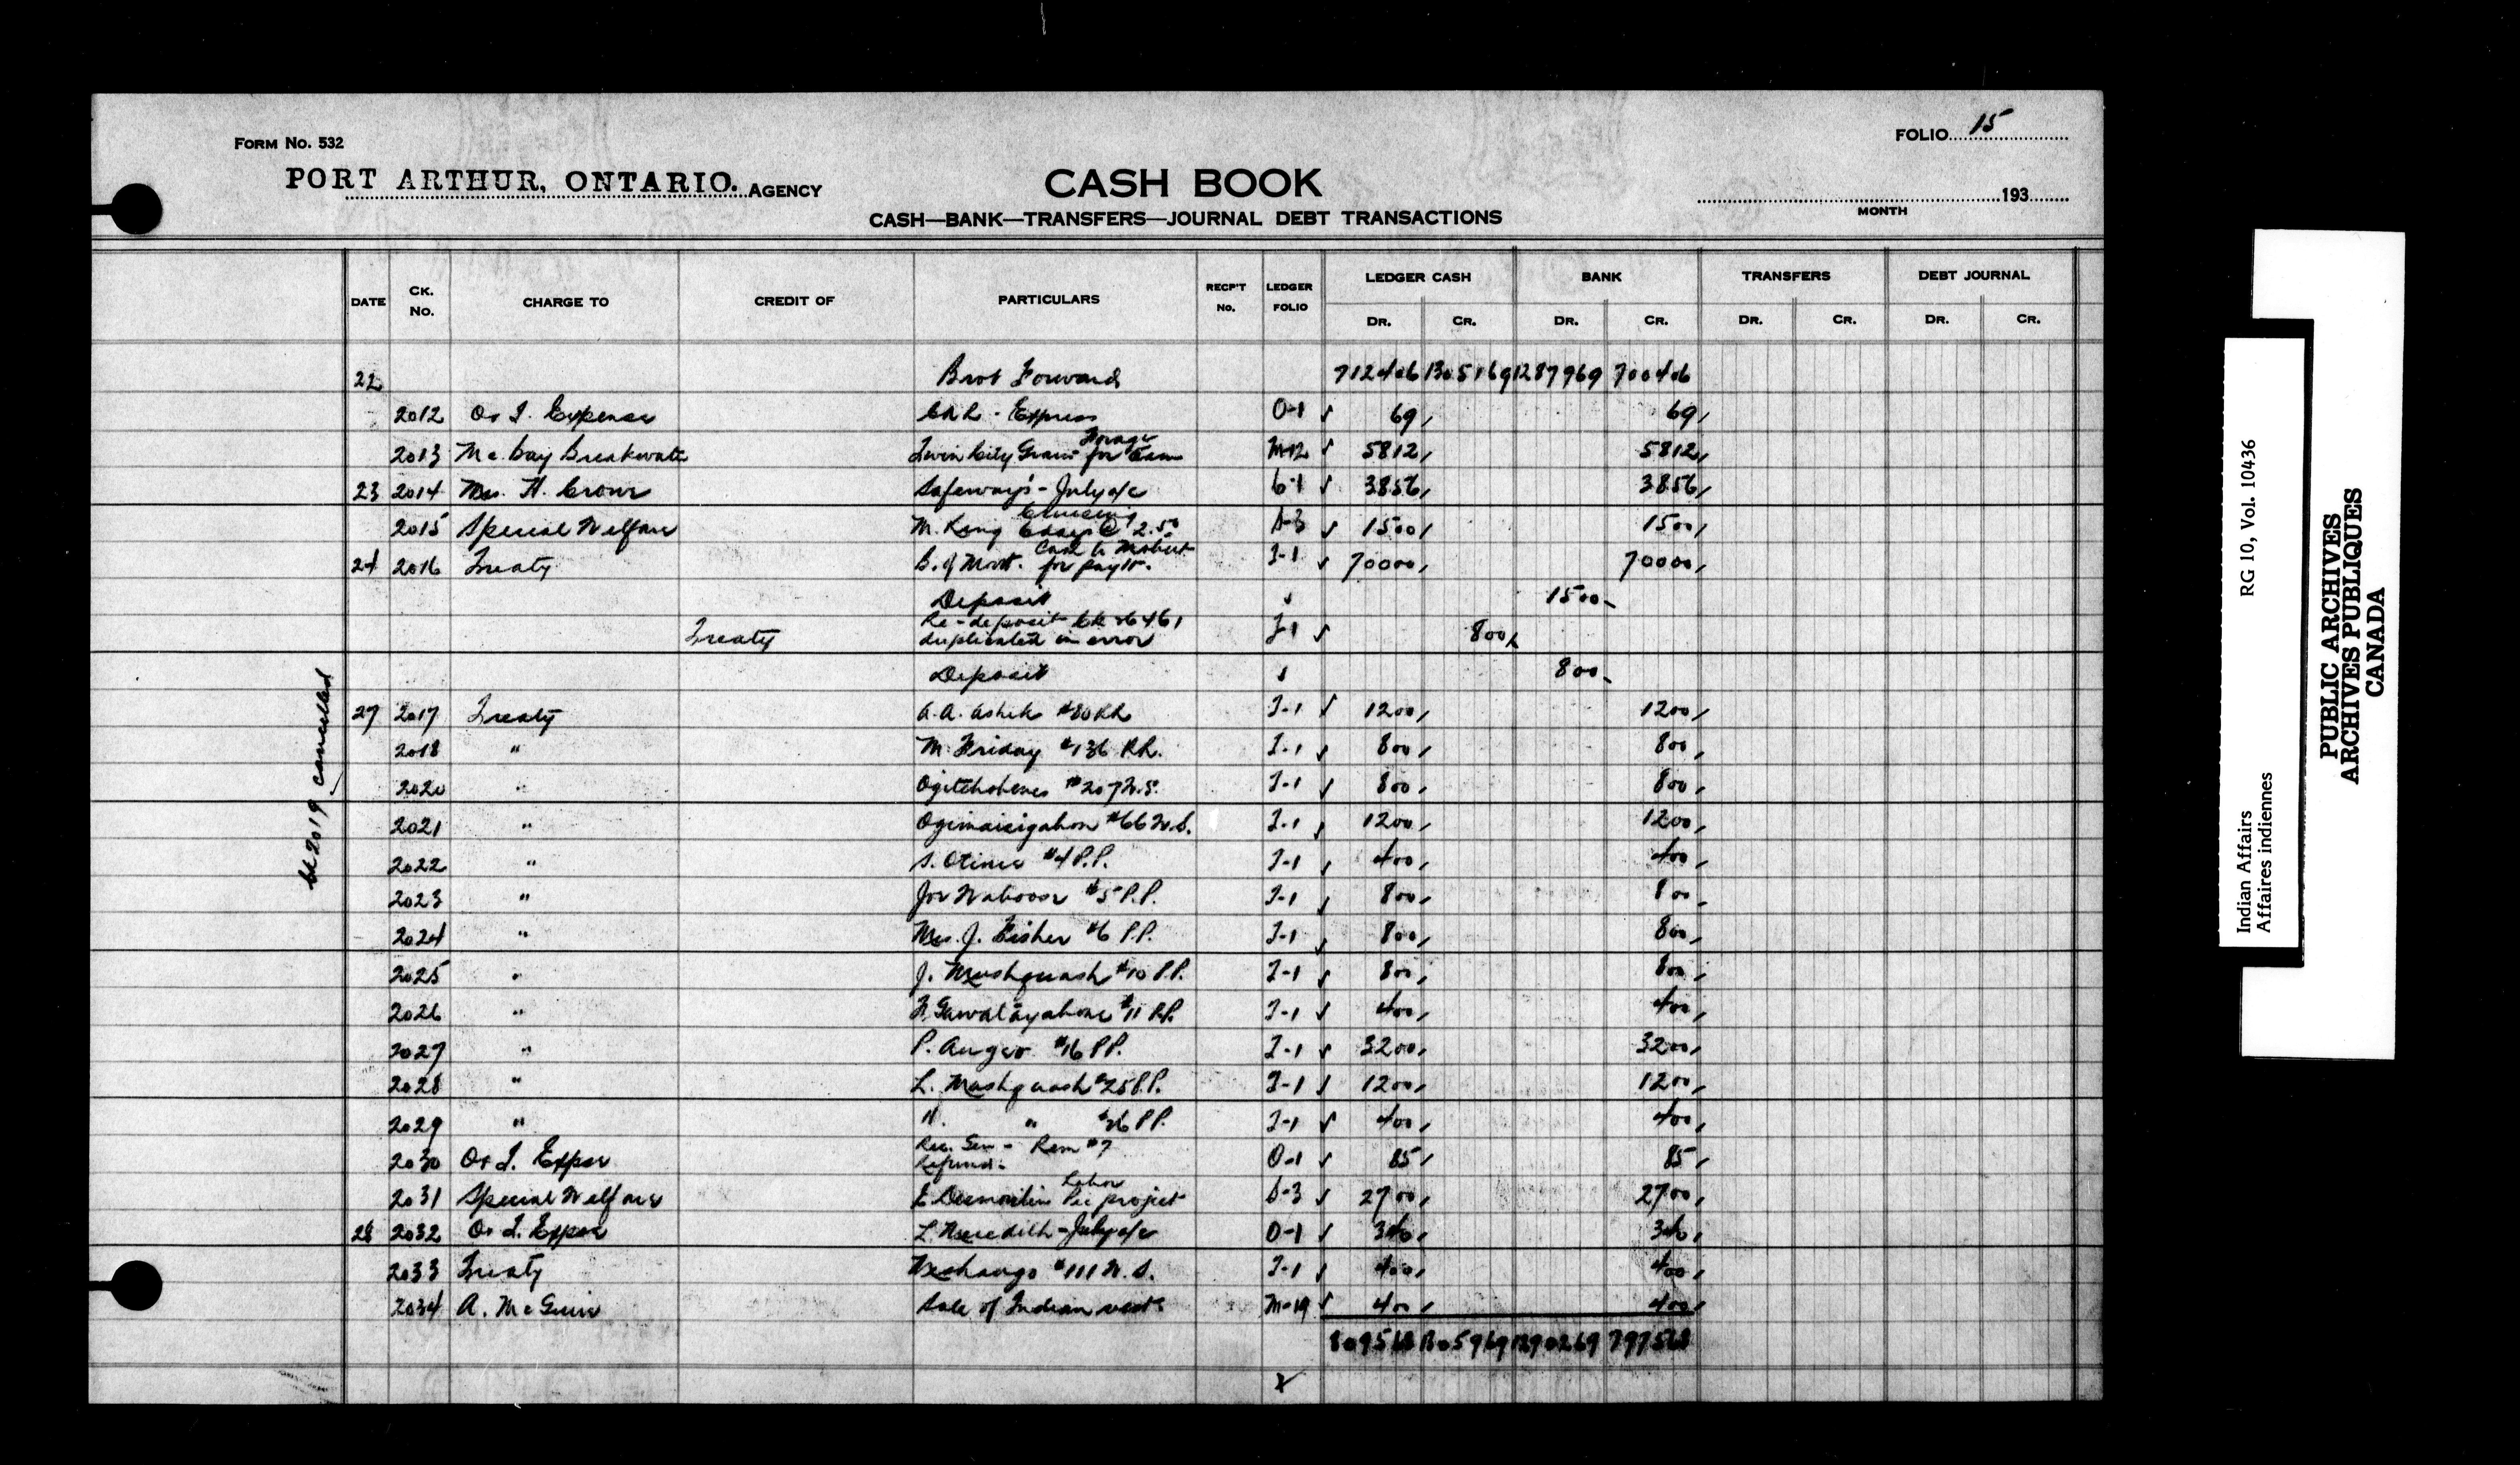 FORM No. 532
FOLIO 15
PORT ARTHUR, ONTARIO. AGENCY
CASH BOOK
193
MONTH
CASH—BANK—TRANSFERS—JOURNAL DEBT TRANSACTIONS
DATE CK. No. CHARGE TO CREDIT OF PARTICULARS RECP'T No. LEDGER FOLIO LEDGER CASH BANK TRANSFERS DEBT JOURNAL
DR. CR. DR. CR. DR. CR. DR. CR.
22 Brot Forward 712406 1305169 1287969 700406
2012 O & I. Expense Express O-1 ✓ 69 69
2013 Mc. Bay Breakwater Twin City Grain Forage for Team M-12 ✓ 5812 5812
23 2014 Mrs. H. Crowe Safeways - July a/c C-1 ✓ 3856 3856
2015 Special Welfare M. King Cruising 6 days @ 2.50 ✓ 1500 1500
24 2016 Treaty B. of Mont. Cash to Mobert for payt. T-1 ✓ 70000 70000
Deposit ✓ 1500-
Treaty Re-deposit Ck 26461 duplicated in error T-1 ✓ 800
Deposit ✓ 800-
27 2017 Treaty A.A. Ashik #80 RR T-1 ✓ 1200 1200
2018 " M. Friday #136 RR. T-1 ✓ 800 800
2020 " #207 N.S. T-1 ✓ 800 800
2021 " Ogimaisigahon #66 N.S. T-1 ✓ 1200 1200
2022 " #4 P.P. T-1 ✓ 400 400
2023 " Joe #5 P.P. T-1 ✓ 800 800
2024 " Mrs. J. Fisher #6 P.P. T-1 ✓ 800 800
2025 " J. Mushquash #10 P.P. T-1 ✓ 800 800
2026 " #11 P.P. T-1 ✓ 400 400
2027 " P. Auger #16 P.P. T-1 ✓ 3200 3200
2028 " L. Mushquash #25 P.P. T-1 ✓ 1200 1200
2029 " " #26 P.P. T-1 ✓ 400 400
2030 O & I. Expse Rec. Gen - Rem #7 Refund. O-1 ✓ 85 85
2031 Special Welfare Labor Pic project ✓ 2700 2700
28 2032 O & I. Expse L. Meredith - July a/c O-1 ✓
2033 Treaty #111 N.S. T-1 ✓ 400 400
2034 A. McGuire Sale of Indian M-19 ✓ 400 400
809568 1305969 1290269 797568
ck 2019 cancelled
Indian Affairs RG 10, Vol. 10436
Affaires indiennes
PUBLIC ARCHIVES
ARCHIVES PUBLIQUES
CANADA